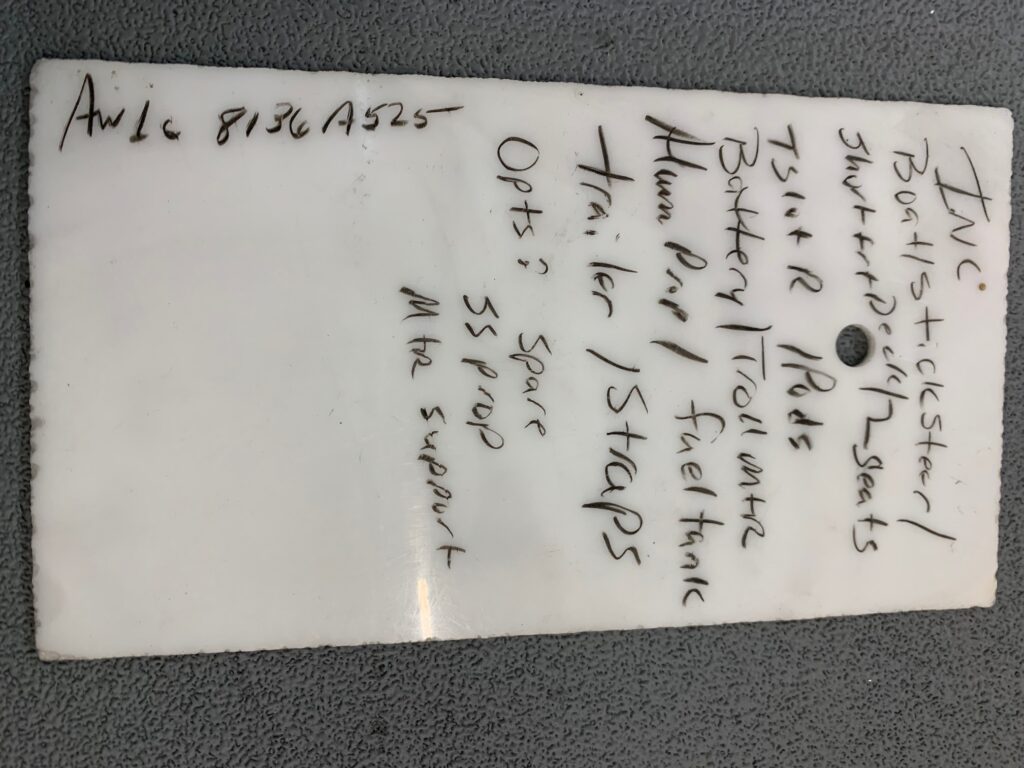 INC.
Boat/Stick Steer/
Short frt Deck/2 seats
Tslot R /Pods
Battery/Troll mtr
Alum Prop/ fuel tank
trailer /Straps
Opts: Spare
SS prop
Mtr support
8136A525